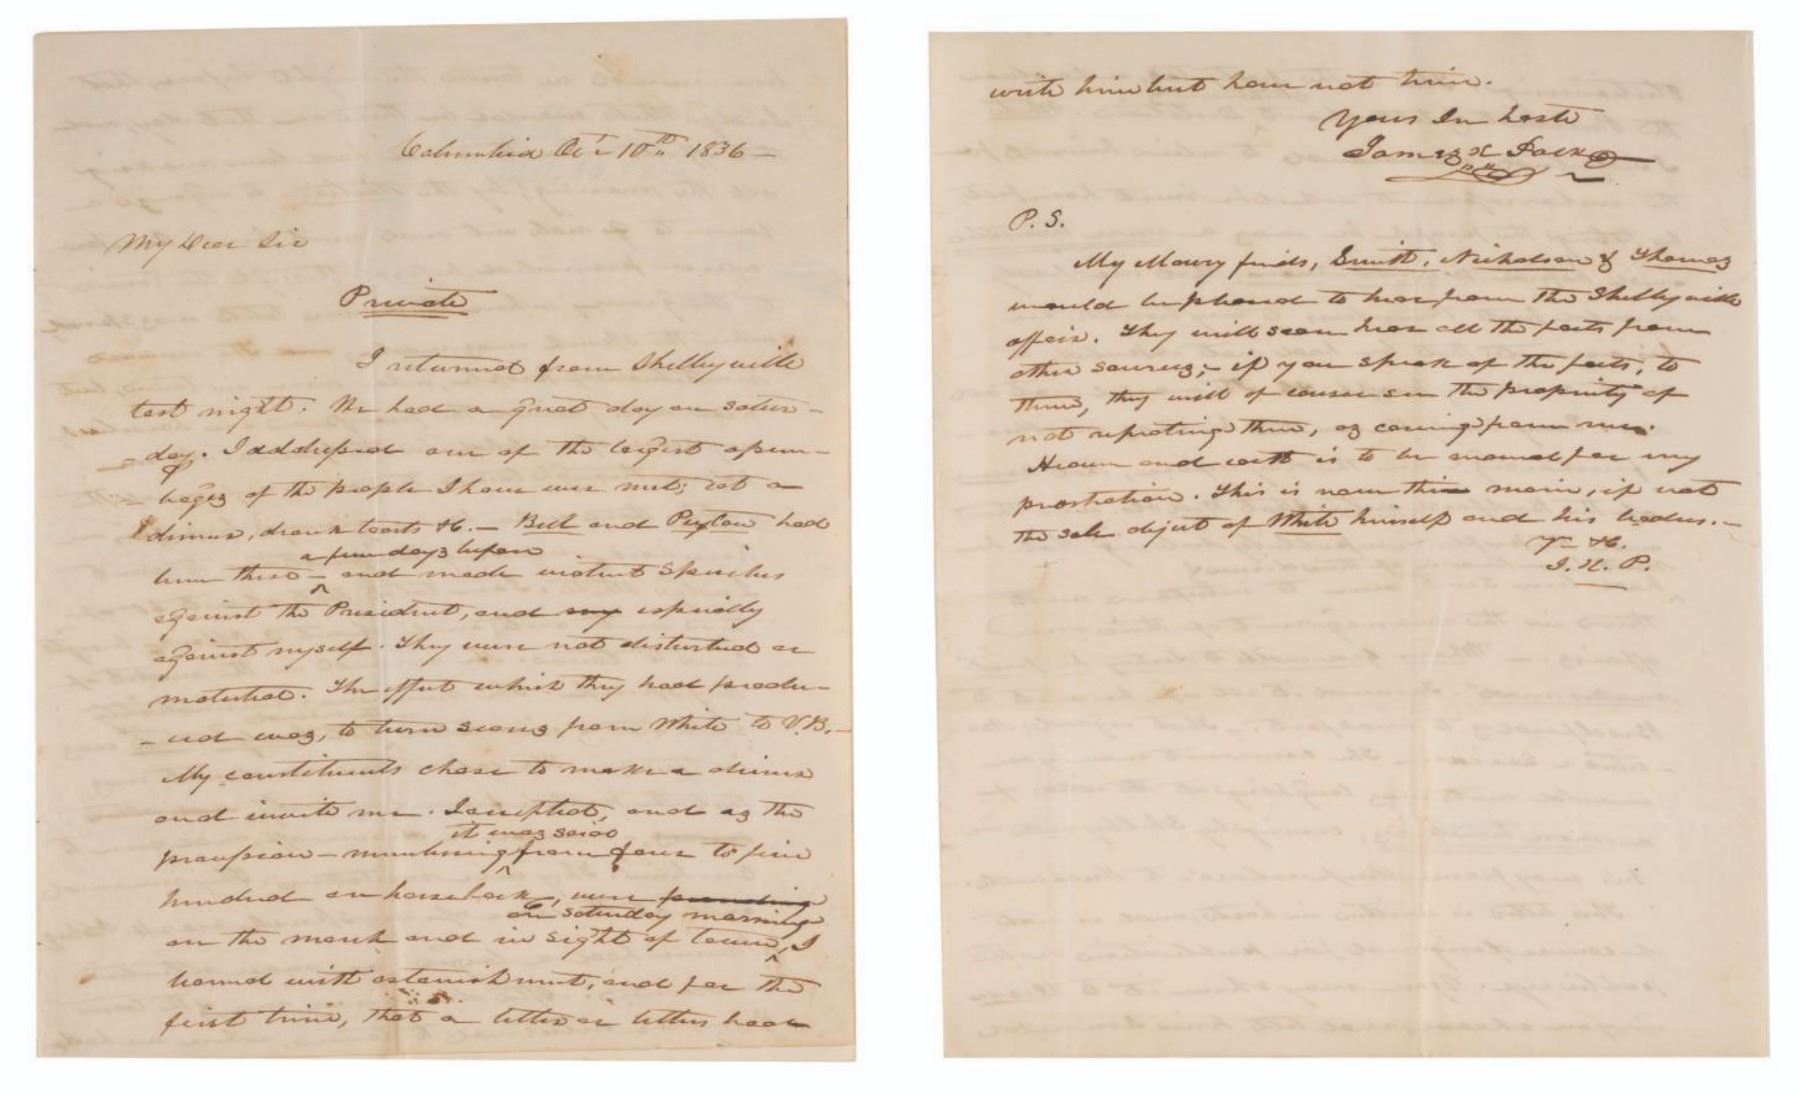 Columbia Oct. 10th 1836 —
My Dear Sir
Private
I returned from Shelbyville
last night. We had a great day on Satur-
-day. I addressed one of the largest assem-
-blages of the people I have ever met; eat a
dinner, drank toasts &c. — Bell and Peyton had
a few days before
been there — and made violent speeches
against the President, and my especially
against myself. They were not disturbed or
molested. The effect which they had produ-
-ced was, to turn scores from White to V.B. —
My constituents chose to make a dinner
and invite me. I accepted, and as the
it was said
procession — numbering from four to five
hundred on horseback, were
on Saturday morning
on the march and in sight of town, I
learned with astonishment, and for the
first time, that a letter or letters had
with him but have not time.
Yours In haste
James K. Polk
P.S.
My Maury friends, Smith, Nicholson & Thomas
would be pleased to hear from the Shelbyville
affair. They will soon hear all the facts from
other sources; — if you speak of the facts, to
them, they will of course see the propriety of
not repeating them, as coming from me.
Heaven and earth is to be moved for my
prostration. This is now the main, if not
the sole object of White himself and his leaders. —
Yr. &c.
J. K. P.